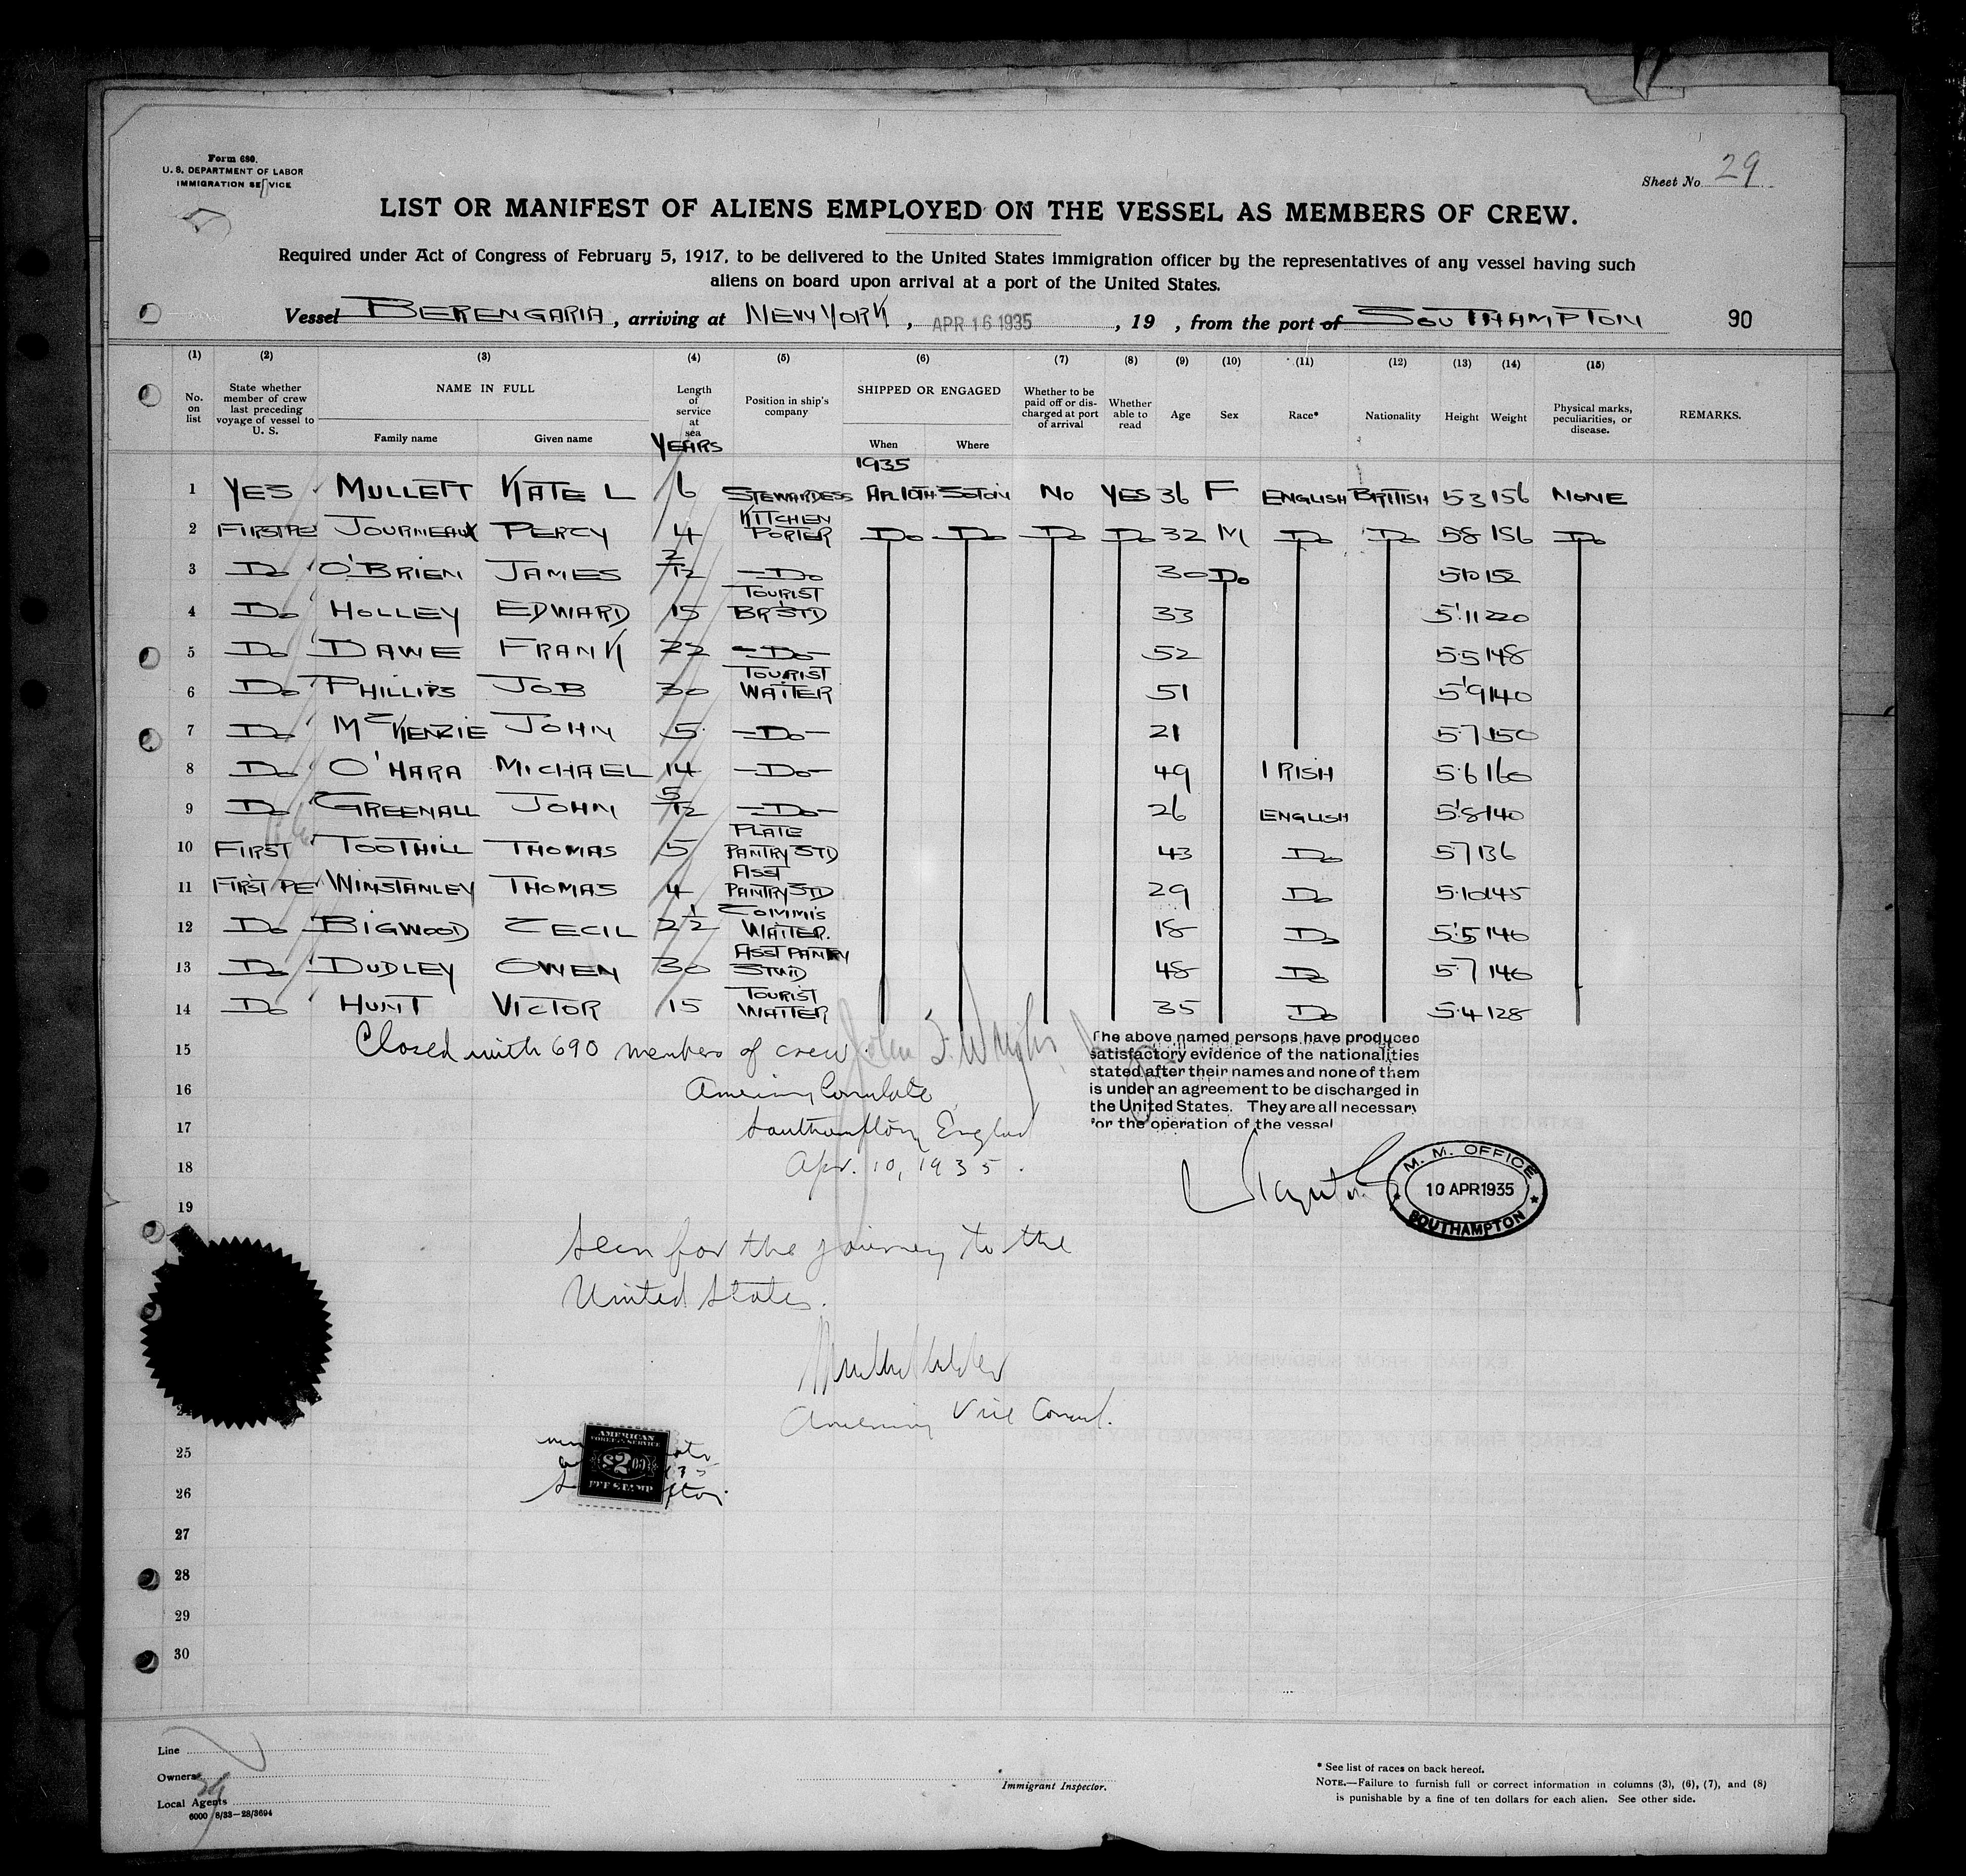 Form 680.
U. S. DEPARTMENT OF LABOR
IMMIGRATION SERVICE
Sheet No. 29
LIST OR MANIFEST OF ALIENS EMPLOYED ON THE VESSEL AS MEMBERS OF CREW.
Required under Act of Congress of February 5, 1917, to be delivered to the United States immigration officer by the representatives of any vessel having such
aliens on board upon arrival at a port of the United States.
Vessel BERENGARIA, arriving at NEW YORK, APR 16 1935, 19 , from the port of SOUTHAMPTON 90
(1) (2) (3) (4) (5) (6) (7) (8) (9) (10) (11) (12) (13) (14) (15)
No. on list
State whether member of crew last preceding voyage of vessel to U. S.
NAME IN FULL
Family name
Given name
Length of service at sea
YEARS
Position in ship's company
SHIPPED OR ENGAGED
When
Where
Whether to be paid off or discharged at port of arrival
Whether able to read
Age
Sex
Race*
Nationality
Height
Weight
Physical marks, peculiarities, or disease.
REMARKS.
1935
1 YES MULLETT KATE L 6 STEWARDESS APL 10TH SOTON NO YES 36 F ENGLISH BRITISH 5 3 156 NONE
2 FIRST PE JOURNEAUX PERCY 4 KITCHEN PORTER DO DO DO DO 32 M DO DO 5 8 156 DO
3 DO O'BRIEN JAMES 2/12 DO 30 DO 5 10 152
4 DO HOLLEY EDWARD 15 TOURIST BR STD 33 5'11 220
5 DO DAWE FRANK 22 DO 52 5.5 148
6 DO PHILLIPS JOB 30 TOURIST WAITER 51 5'9 140
7 DO McKENZIE JOHN 5 DO 21 5.7 150
8 DO O'HARA MICHAEL 14 DO 49 IRISH 5.6 160
9 DO GREENALL JOHN 5/12 DO 26 ENGLISH 5'8 140
10 FIRST TOOTHILL THOMAS 5 PLATE PANTRY STD 43 DO 5 7 136
11 FIRST PE WINSTANLEY THOMAS 4 ASST PANTRY STD 29 DO 5.10 145
12 DO BIGWOOD CECIL 2 1/2 COMMIS WAITER. 18 DO 5'5 140
13 DO DUDLEY OWEN 30 ASST PANTRY STWD 48 DO 5.7 140
14 DO HUNT VICTOR 15 TOURIST WAITER 35 DO 5.4 128
15 Closed with 690 members of crew. John F. Wright
The above named persons have produced
satisfactory evidence of the nationalities
stated after their names and none of them
is under an agreement to be discharged in
the United States. They are all necessary
for the operation of the vessel
16 American Consulate
17 Southampton, England
18 Apr. 10, 1935.
M. M. OFFICE
10 APR 1935
SOUTHAMPTON
19
Seen for the journey to the
United States.
American Vice Consul.
AMERICAN
FOREIGN SERVICE
$2.00
FEE STAMP
25
26
27
28
29
30
Line
Owners
Local Agents
6000 8/33—28/3694
Immigrant Inspector.
* See list of races on back hereof.
NOTE.—Failure to furnish full or correct information in columns (3), (6), (7), and (8)
is punishable by a fine of ten dollars for each alien. See other side.